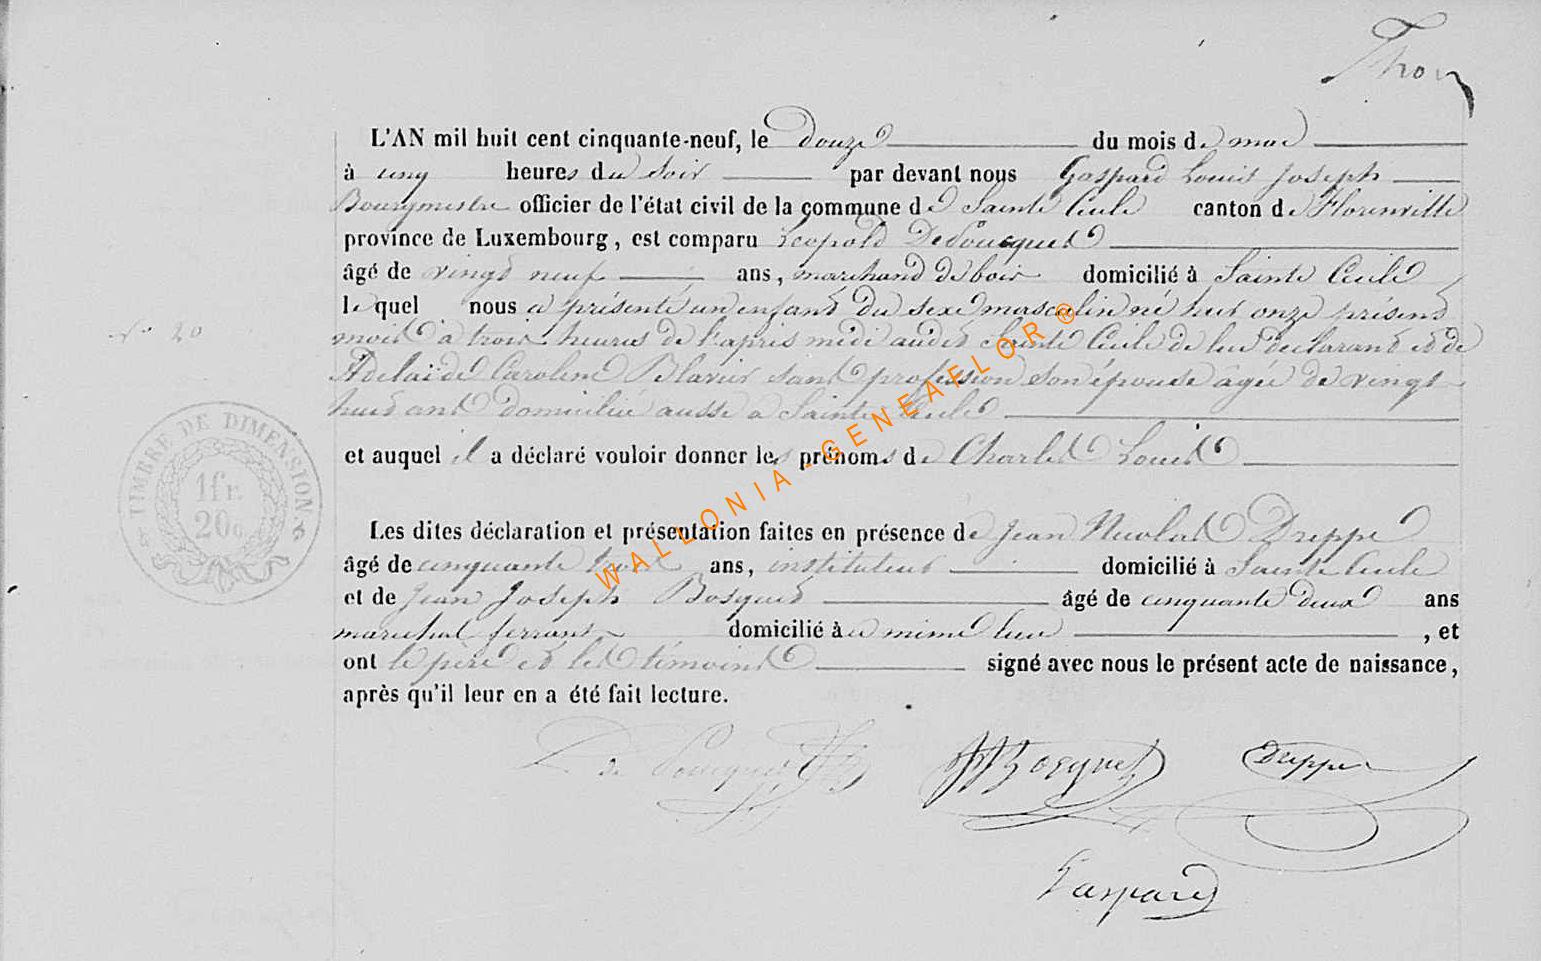 Thory
L'AN mil huit cent cinquante-neuf, le douze du mois de mai
à cinq heures du soir par devant nous Gaspard Louis Joseph
Bourgmestre officier de l'état civil de la commune de Sainte Cecile canton de Florenville
province de Luxembourg, est comparu Léopold De Foucquet
âgé de vingt neuf ans, marchand de bois domicilié à Sainte Cecile
lequel nous a présenté un enfant du sexe masculin né onze présent
N° 20
mois à trois heures de l'apris midi audit Sainte Cecile de lui déclarant et de
Adelaide Caroline sans profession son épouse âgée de vingt
huit ans domiciliée aussi à Sainte Cecile
et auquel il a déclaré vouloir donner les prénoms de Charles Louis
TIMBRE DE DIMENSION
1 fr.
20 c
Les dites déclaration et présentation faites en présence de Jean Nicolas Dreppe
âgé de cinquante trois ans, instituteur domicilié à Sainte Cecile
et de Jean Joseph Bosquet âgé de cinquante deux ans
marechal ferrant domicilié à même lieu , et
ont le père et les témoins signé avec nous le présent acte de naissance,
après qu'il leur en a été fait lecture.
WALLONIA-GENEAFLOR®
Dreppe
Gaspard